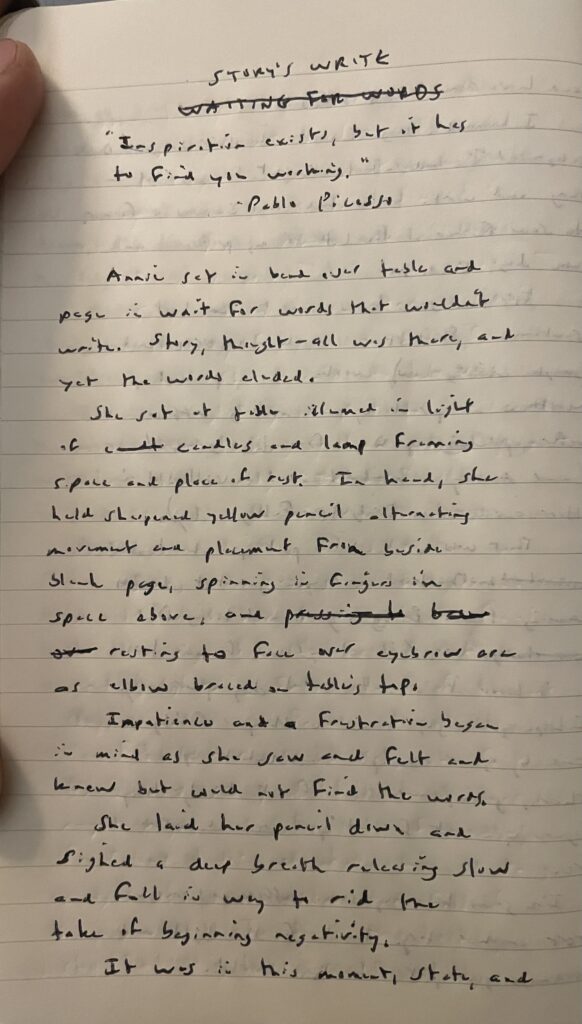 STORY'S WRITE
WAITING FOR WORDS
"Inspiration exists, but it has
to find you working."
-Pablo Picasso
Annie sat in bend over table and
page in wait for words that wouldn't
write. Story, thought-all was there, and
yet the words eluded.
She sat at table illumed in light
of candles and lamp framing
space and place of rest. In hand, she
held sharpened yellow pencil alternating
movement and placement from beside
blank page, spinning in fingers in
space above, and pressing to
resting to face over eyebrow are
as elbow braced on table's top.
Impatience and a frustration began
in mind as she saw and felt and
knew but could not find the words.
She laid her pencil down and
sighed a deep breath releasing slow
and full in way to rid the
take of beginning negativity.
It was in this moment, state, and